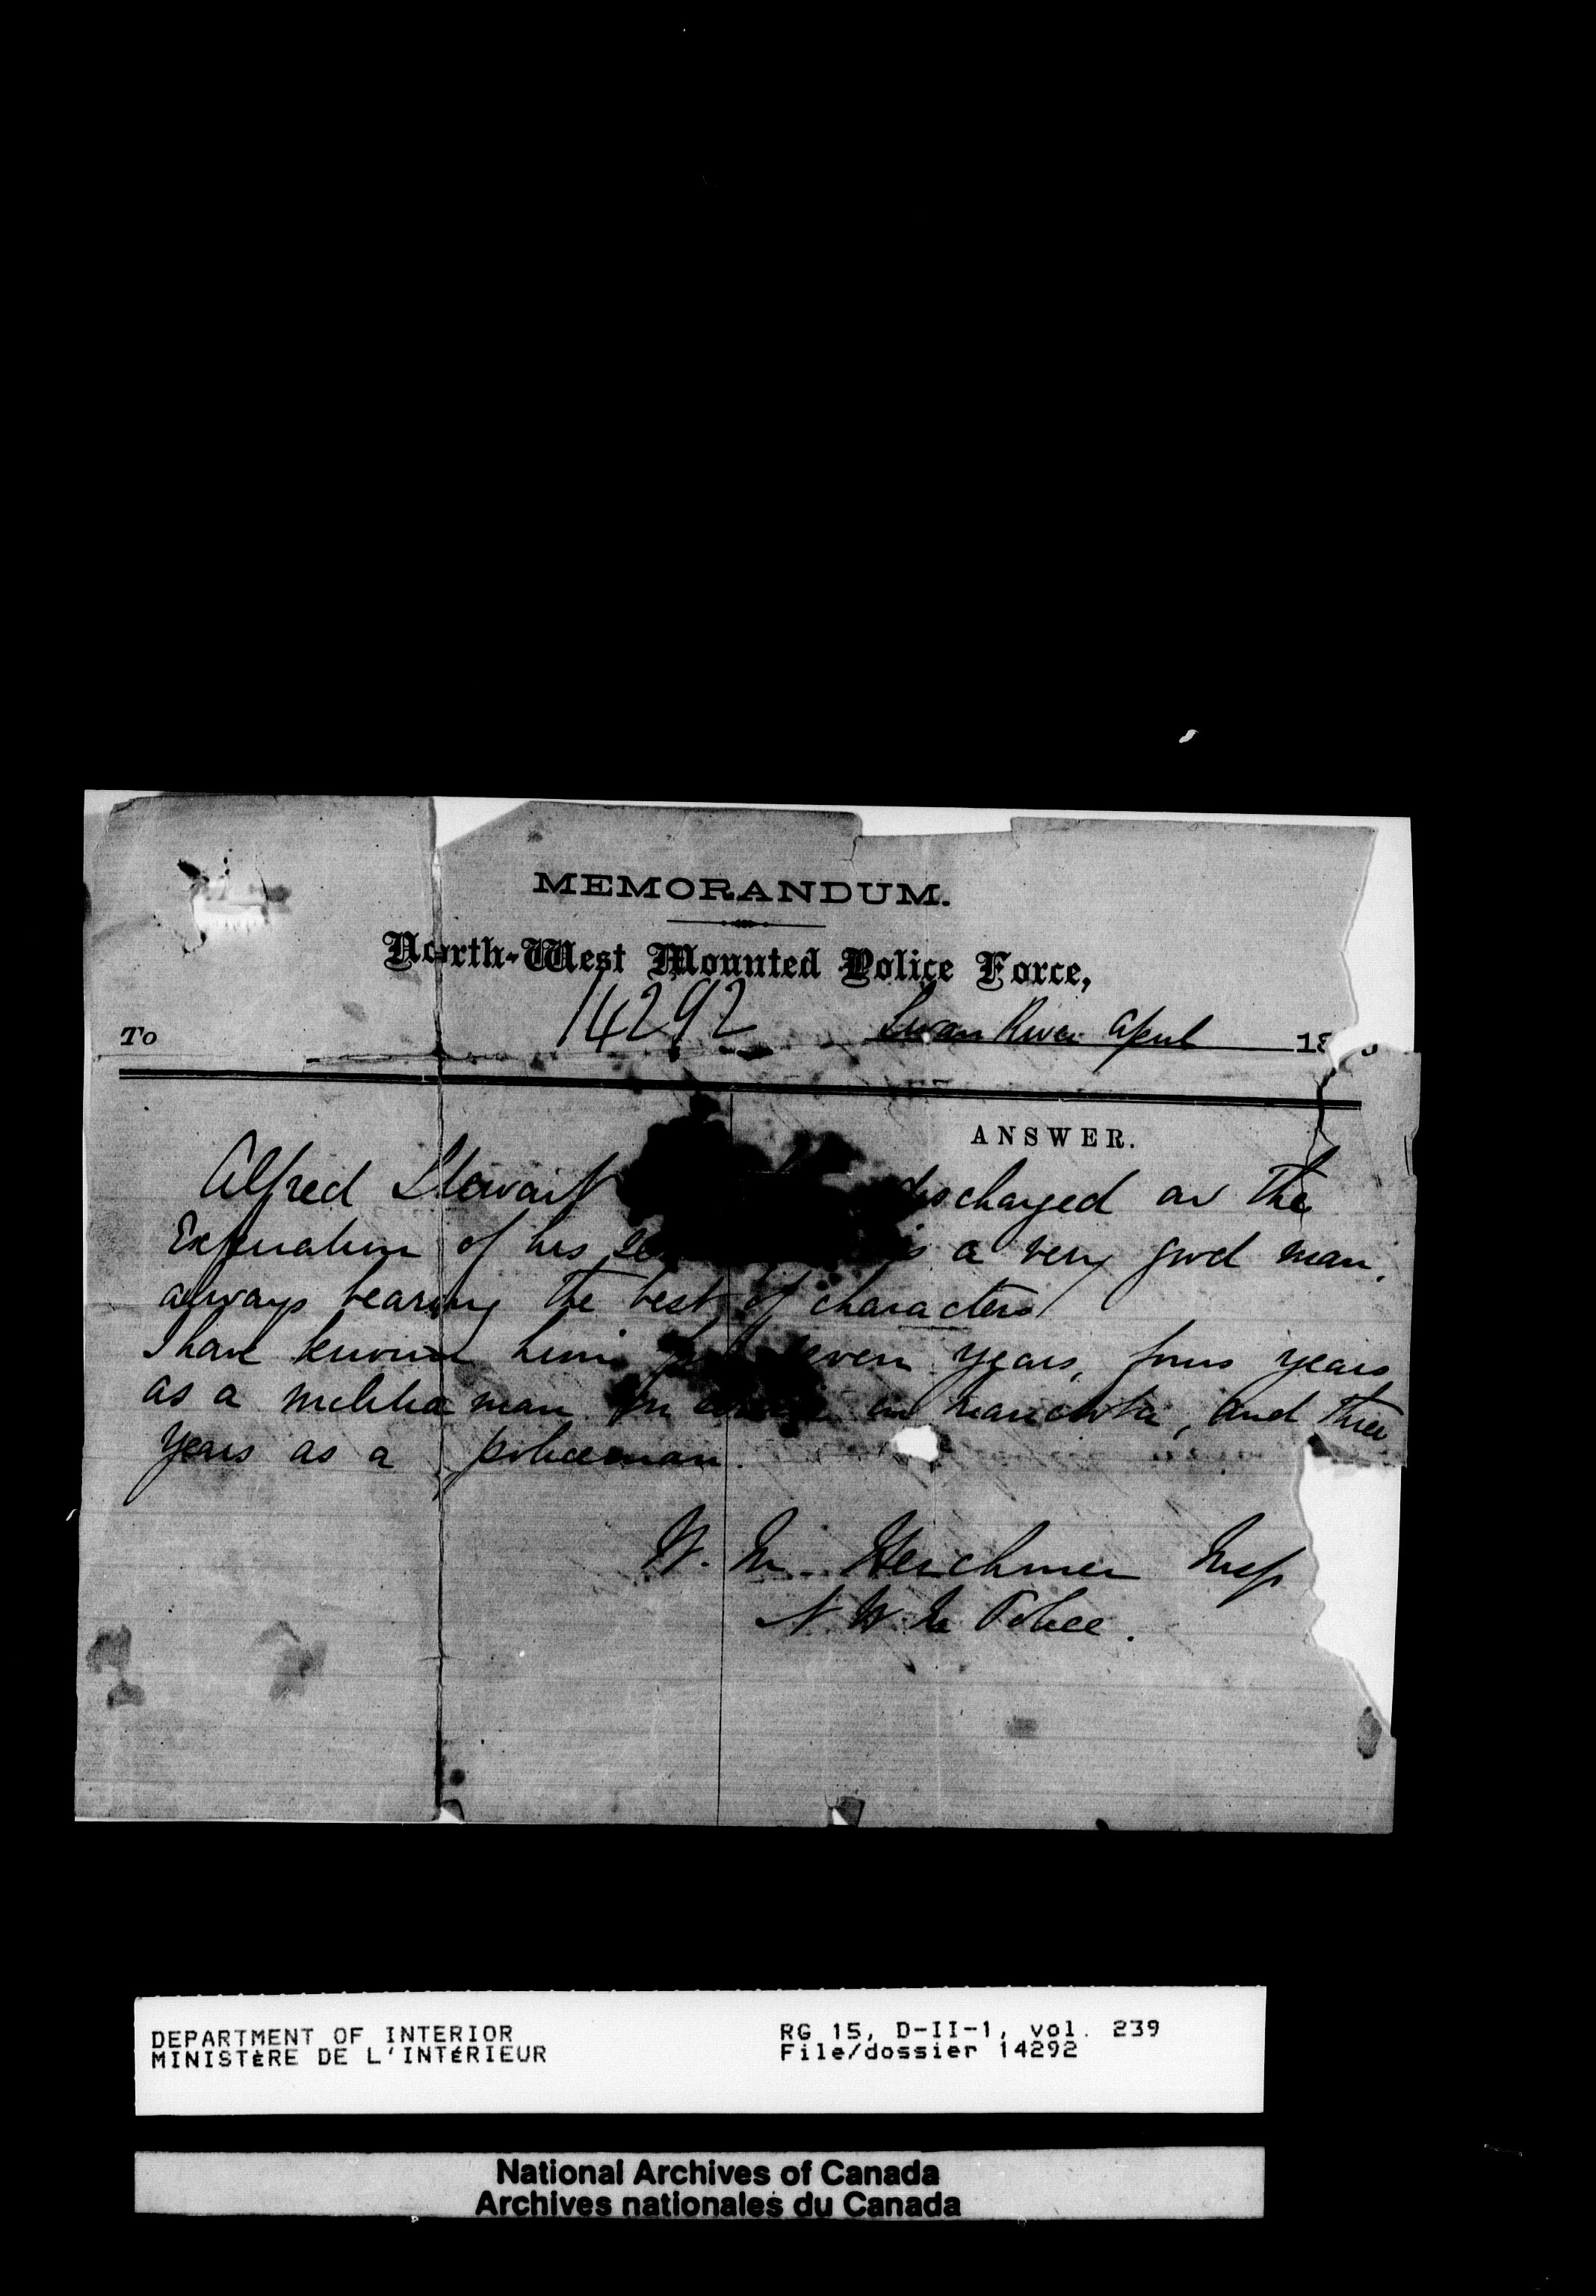 MEMORANDUM.
North-West Mounted Police Force,
14292
To Swan River April 18
ANSWER.
Alfred Stewart discharged on the
Expiration of his is a very good man.
always bearing the best of characters
I have known him for seven years, four years
as a militia man in Manitoba, and three
years as a policeman.
W. M. Herchmer Insp
N. W. M. Police.
DEPARTMENT OF INTERIOR
MINISTÈRE DE L'INTÉRIEUR
RG 15, D-II-1, vol. 239
File/dossier 14292
National Archives of Canada
Archives nationales du Canada